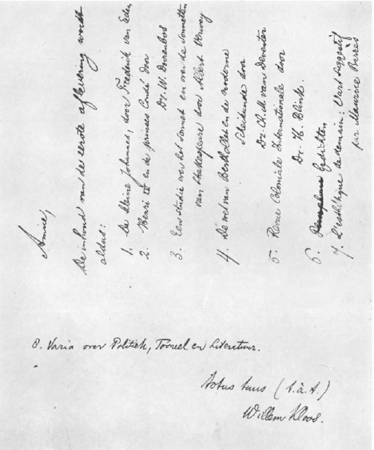 Amice,
De inhoud van de eerste aflevering wordt
aldus:
1. De kleine Johannes, door Frederik van Eeden
2. Henri IV en de princes Condé door
Dr. W. Doorenbos
3. Een studie over het sonnet en over de sonnetten
van Shakespeare door Albert Verwey
4. De wet van Berthollet en de moderne
Scheikunde door
Dr. Ch. M. van Deventer
5. Revue Coloniale Internationale door
Dr. H. Blink.
6. Gedichten
7. L'esthétique de demain: l'art suggestif
par Maurice Barrès
8. Varia over Politiek, Tooneel en Literatuur.
totus tuus (t. à t.)
Willem Kloos.